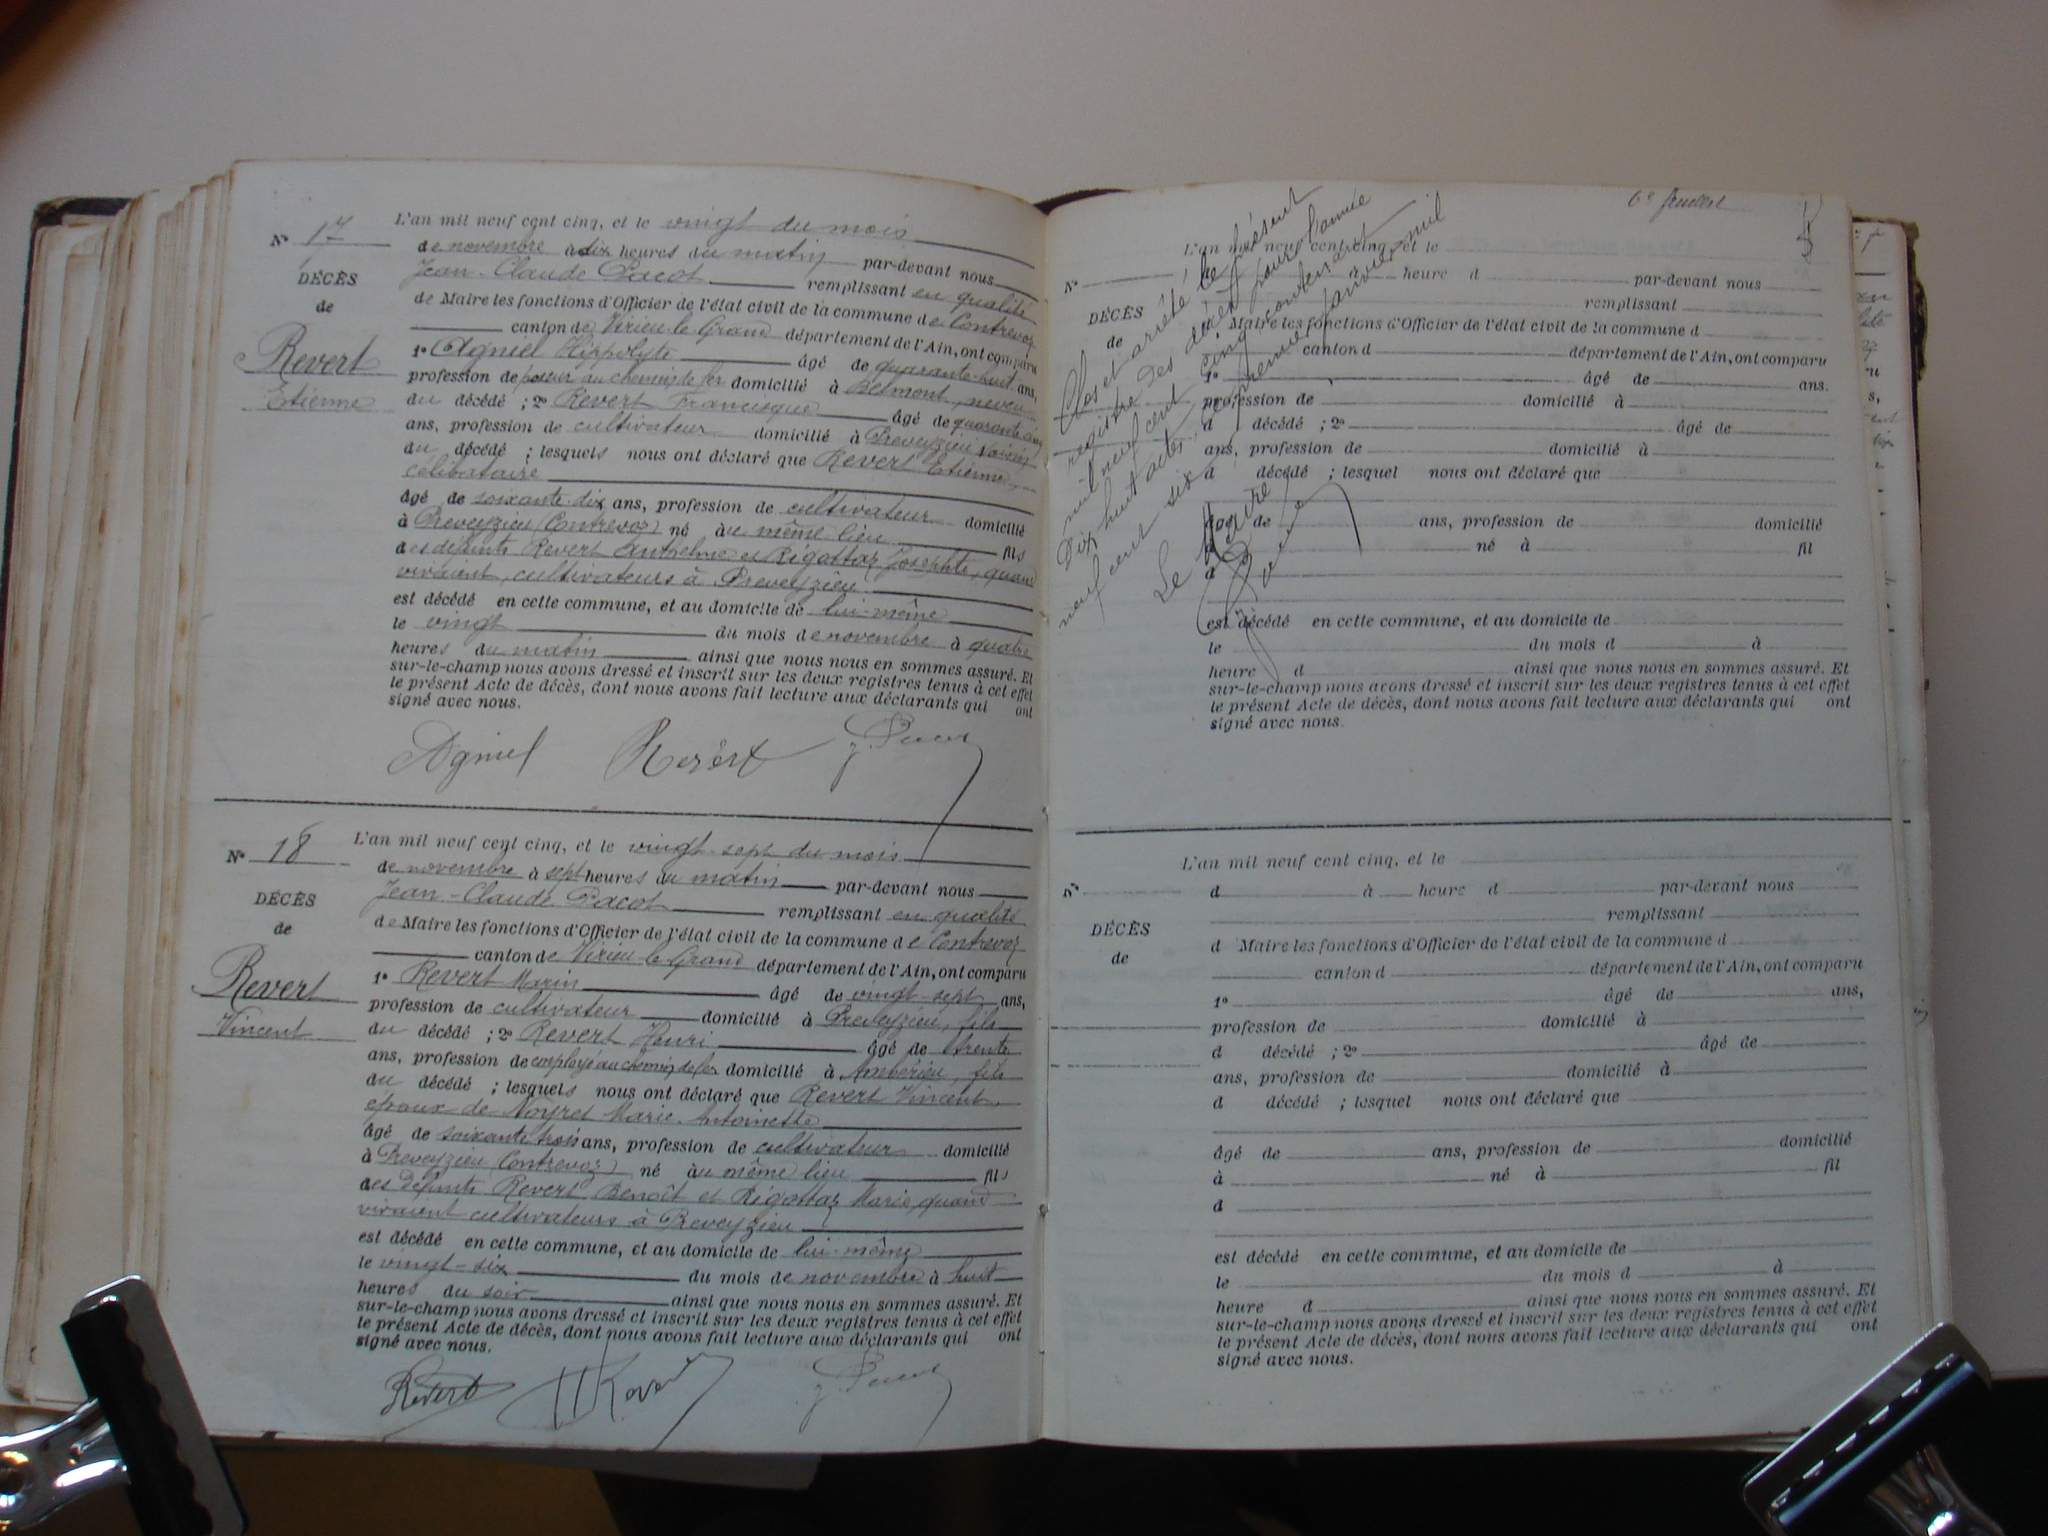 L'an mil neuf cent cinq, et le vingt du mois
N° 17
de novembre à dix heures du matin par-devant nous
Jean-Claude Pacot remplissant en qualité
DÉCÈS
de Maire les fonctions d'Officier de l'état civil de la commune de Contrevoz
de
canton de Virieu-le-Grand département de l'Ain, ont comparu
Revert
1° Agniel Hippolyte âgé de quarante-huit ans,
profession de poseur au chemin de fer domicilié à Belmont, neveu
Etienne
du décédé ; 2° Revert Francisque âgé de quarante cinq
ans, profession de cultivateur domicilié à Preveyzieu voisin
du décédé ; lesquels nous ont déclaré que Revert Etienne,
célibataire
âgé de soixante-dix ans, profession de cultivateur domicilié
à Preveyzieu (Contrevoz) né au même lieu fils
des défunts Revert Anthelme et Rigottaz Josephte, quand
vivaient, cultivateurs à Preveyzieu
est décédé en cette commune, et au domicile de lui-même
le vingt du mois de novembre à quatre
heures du matin ainsi que nous nous en sommes assuré. Et
sur-le-champ nous avons dressé et inscrit sur les deux registres tenus à cet effet
le présent Acte de décès, dont nous avons fait lecture aux déclarants qui ont
signé avec nous.
Agniel Revert J. Pacot
L'an mil neuf cent cinq, et le vingt-sept du mois
N° 18
de novembre à sept heures du matin par-devant nous
Jean-Claude Pacot remplissant en qualité
DÉCÈS
de Maire les fonctions d'Officier de l'état civil de la commune de Contrevoz
de
canton de Virieu-le-Grand département de l'Ain, ont comparu
Revert
1° Revert Marin âgé de vingt-sept ans,
profession de cultivateur domicilié à Preveyzieu, fils
Vincent
du décédé ; 2° Revert Henri âgé de trente
ans, profession de employé au chemin de fer domicilié à Ambérieu, fils
du décédé ; lesquels nous ont déclaré que Revert Vincent,
époux de Noyret Marie Antoinette
âgé de soixante trois ans, profession de cultivateur domicilié
à Preveyzieu, Contrevoz) né au même lieu fils
des défunts Revert Benoît et Rigottaz Marie, quand
vivaient cultivateurs à Preveyzieu
est décédé en cette commune, et au domicile de lui-même
le vingt-six du mois de novembre à huit
heures du soir ainsi que nous nous en sommes assuré. Et
sur-le-champ nous avons dressé et inscrit sur les deux registres tenus à cet effet
le présent Acte de décès, dont nous avons fait lecture aux déclarants qui ont
signé avec nous.
Revert H Revert J. Pacot
6e feuillet
Clos et arrêté le présent
registre des décès pour l'année
mil neuf cent cinq contenant
Dix huit actes, le premier janvier mil
neuf cent six
Le Maire
L'an mil neuf cent cinq, et le
N° d à heure d par-devant nous
remplissant
DÉCÈS
d Maire les fonctions d'Officier de l'état civil de la commune d
de
canton d département de l'Ain, ont comparu
1° âgé de ans.
profession de domicilié à
d décédé ; 2° âgé de
ans, profession de domicilié à
d décédé ; lesquel nous ont déclaré que
âgé de ans, profession de domicilié
à né à fil
d
est décédé en cette commune, et au domicile de
le du mois d à
heure d ainsi que nous nous en sommes assuré. Et
sur-le-champ nous avons dressé et inscrit sur les deux registres tenus à cet effet
le présent Acte de décès, dont nous avons fait lecture aux déclarants qui ont
signé avec nous.
L'an mil neuf cent cinq, et le
N° d à heure d par-devant nous
remplissant
DÉCÈS
d Maire les fonctions d'Officier de l'état civil de la commune d
de
canton d département de l'Ain, ont comparu
1° âgé de ans,
profession de domicilié à
d décédé ; 2° âgé de
ans, profession de domicilié à
d décédé ; lesquel nous ont déclaré que
âgé de ans, profession de domicilié
à né à fil
d
est décédé en cette commune, et au domicile de
le du mois d à
heure d ainsi que nous nous en sommes assuré. Et
sur-le-champ nous avons dressé et inscrit sur les deux registres tenus à cet effet
le présent Acte de décès, dont nous avons fait lecture aux déclarants qui ont
signé avec nous.